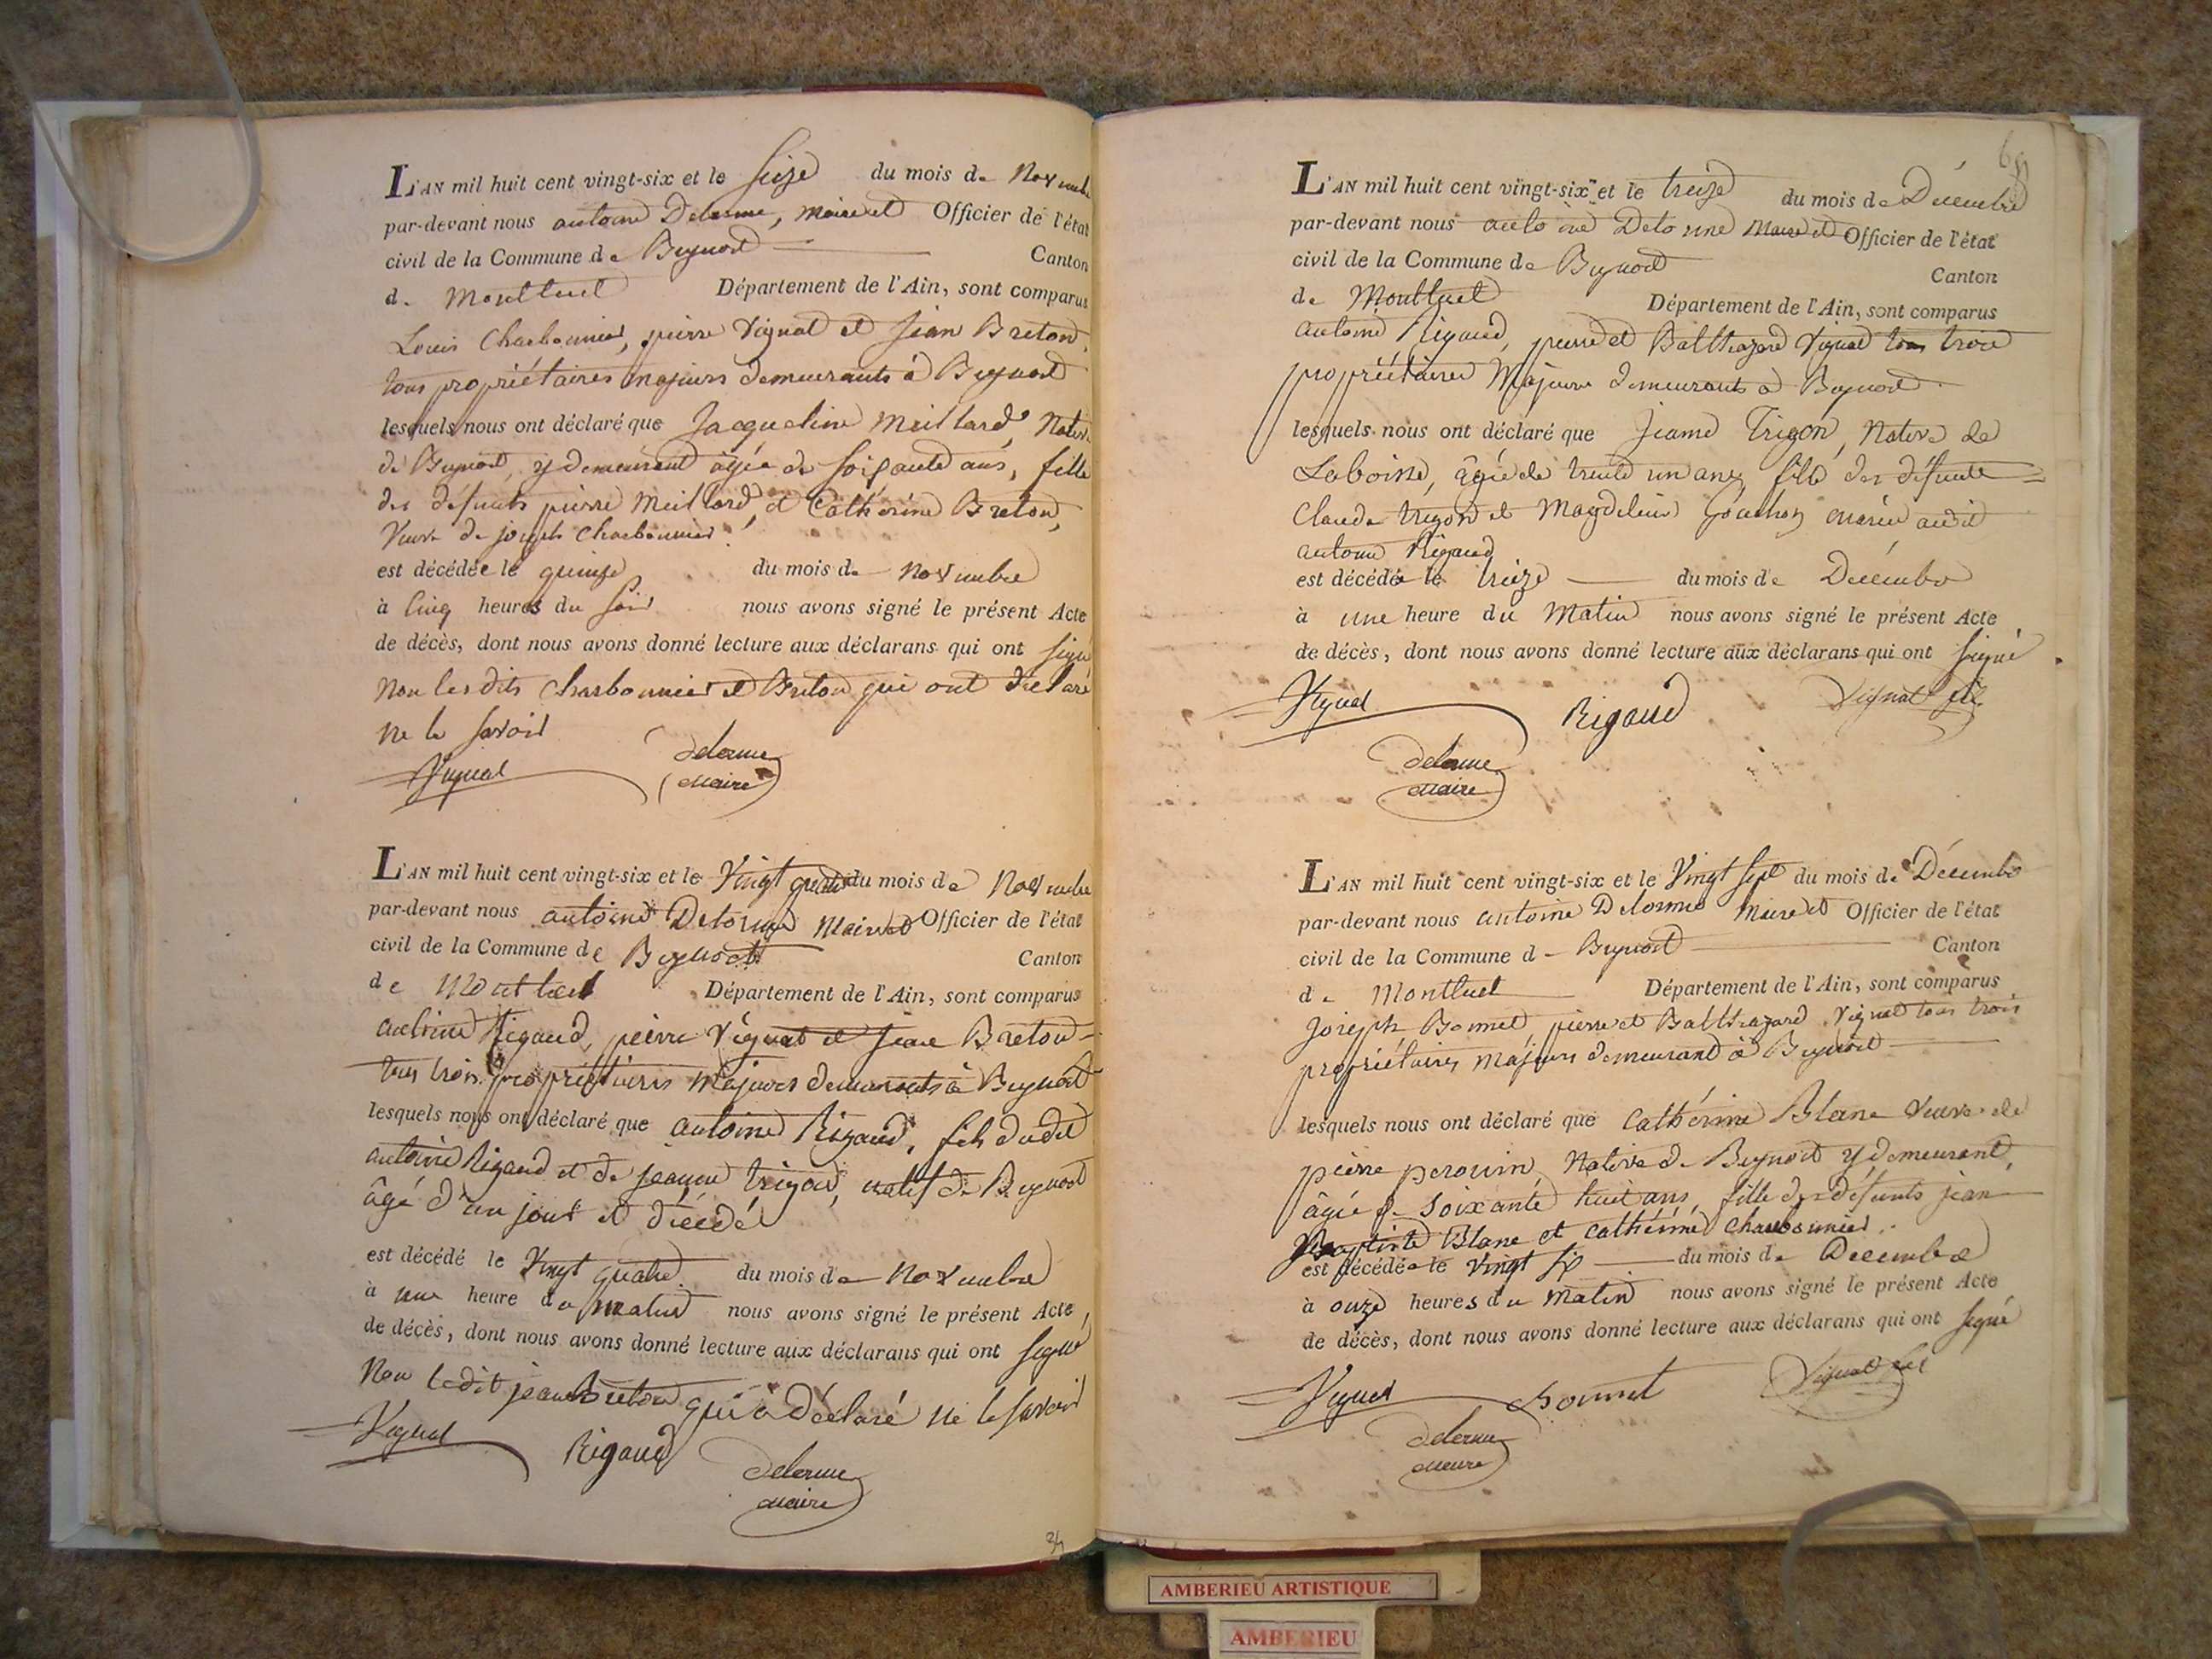 L'AN mil huit cent vingt-six et le seize du mois de Novembre
par-devant nous antoine Delorme, maire et Officier de l'état
civil de la Commune de Beynost Canton
de Montluel Département de l'Ain, sont comparus
Louis Charbonnier, pierre Vignat et Jean Breton,
tous propriétaires majeurs demeurants à Beynost
lesquels nous ont déclaré que Jacqueline Meillard, Native
de Beynost, y demeurant âgée de soissante ans, fille
des défunts pierre Meillard, et Cathérine Breton,
Veuve de joseph Charbonnier.
est décédée le quinze du mois de Novembre
à Cinq heures du soir nous avons signé le présent Acte
de décès, dont nous avons donné lecture aux déclarans qui ont signé
Non les dits Charbonnier et Breton qui ont déclaré
ne le savoir
Vignat delorme
maire
L'AN mil huit cent vingt-six et le Vingt quatre du mois de Novembre
par-devant nous antoine Delorme Maire et Officier de l'état
civil de la Commune de Beynost Canton
de Montluel Département de l'Ain, sont comparus
antoine Rigaud, pierre Vignat et Jean Breton
tous trois propriétaires majeurs demeurants à Beynost
lesquels nous ont déclaré que antoine Rigaud, fils dudit
antoine Rigaud et de jeanne trigon, natif de Beynost
âgé d'un jour et décédé
est décédé le Vingt quatre du mois de Novembre
à une heure du matin nous avons signé le présent Acte
de décès, dont nous avons donné lecture aux déclarans qui ont signé
Non ledit jean Breton qui à déclaré ne le savoir
Vignat Rigaud delorme
maire
2/7
L'AN mil huit cent vingt-six et le treize du mois de Décembre
par-devant nous antoine Delorme Maire et Officier de l'état
civil de la Commune de Beynost
Canton
de Montluel Département de l'Ain, sont comparus
antoine Rigaud, pierre et Balthazard Vignat tous trois
propriétaires Majeurs demeurants à Beynost
lesquels nous ont déclaré que Jeanne Trigon, Native de
Laboisse, âgée de trente un ans, fille des défunts
Claude trigon et Magdeleine Gouchon mariée audit
antoine Rigaud
est décédée le treize du mois de Décembre
à une heure du Matin nous avons signé le présent Acte
de décès, dont nous avons donné lecture aux déclarans qui ont signé
Vignat Rigaud Vignat fils
delorme
maire
L'AN mil huit cent vingt-six et le Vingt sept du mois de Décembre
par-devant nous antoine Delorme Maire et Officier de l'état
civil de la Commune de Beynost Canton
de Montluel Département de l'Ain, sont comparus
Joseph Bonnet, pierre et Balthazard Vignat tous trois
propriétaires majeurs demeurant à Beynost
lesquels nous ont déclaré que Cathérine Blanc Veuve de
pierre perouin, Native de Beynost y demeurant,
âgée de soixante huit ans, fille des défunts jean
Baptiste Blanc et Cathérine Charbonnier.
est décédée le vingt six du mois de Decembre
à onze heures du Matin nous avons signé le présent Acte
de décès, dont nous avons donné lecture aux déclarans qui ont signé
Vignat Bonnet Vignat fils
delorme
maire
AMBERIEU ARTISTIQUE
AMBERIEU